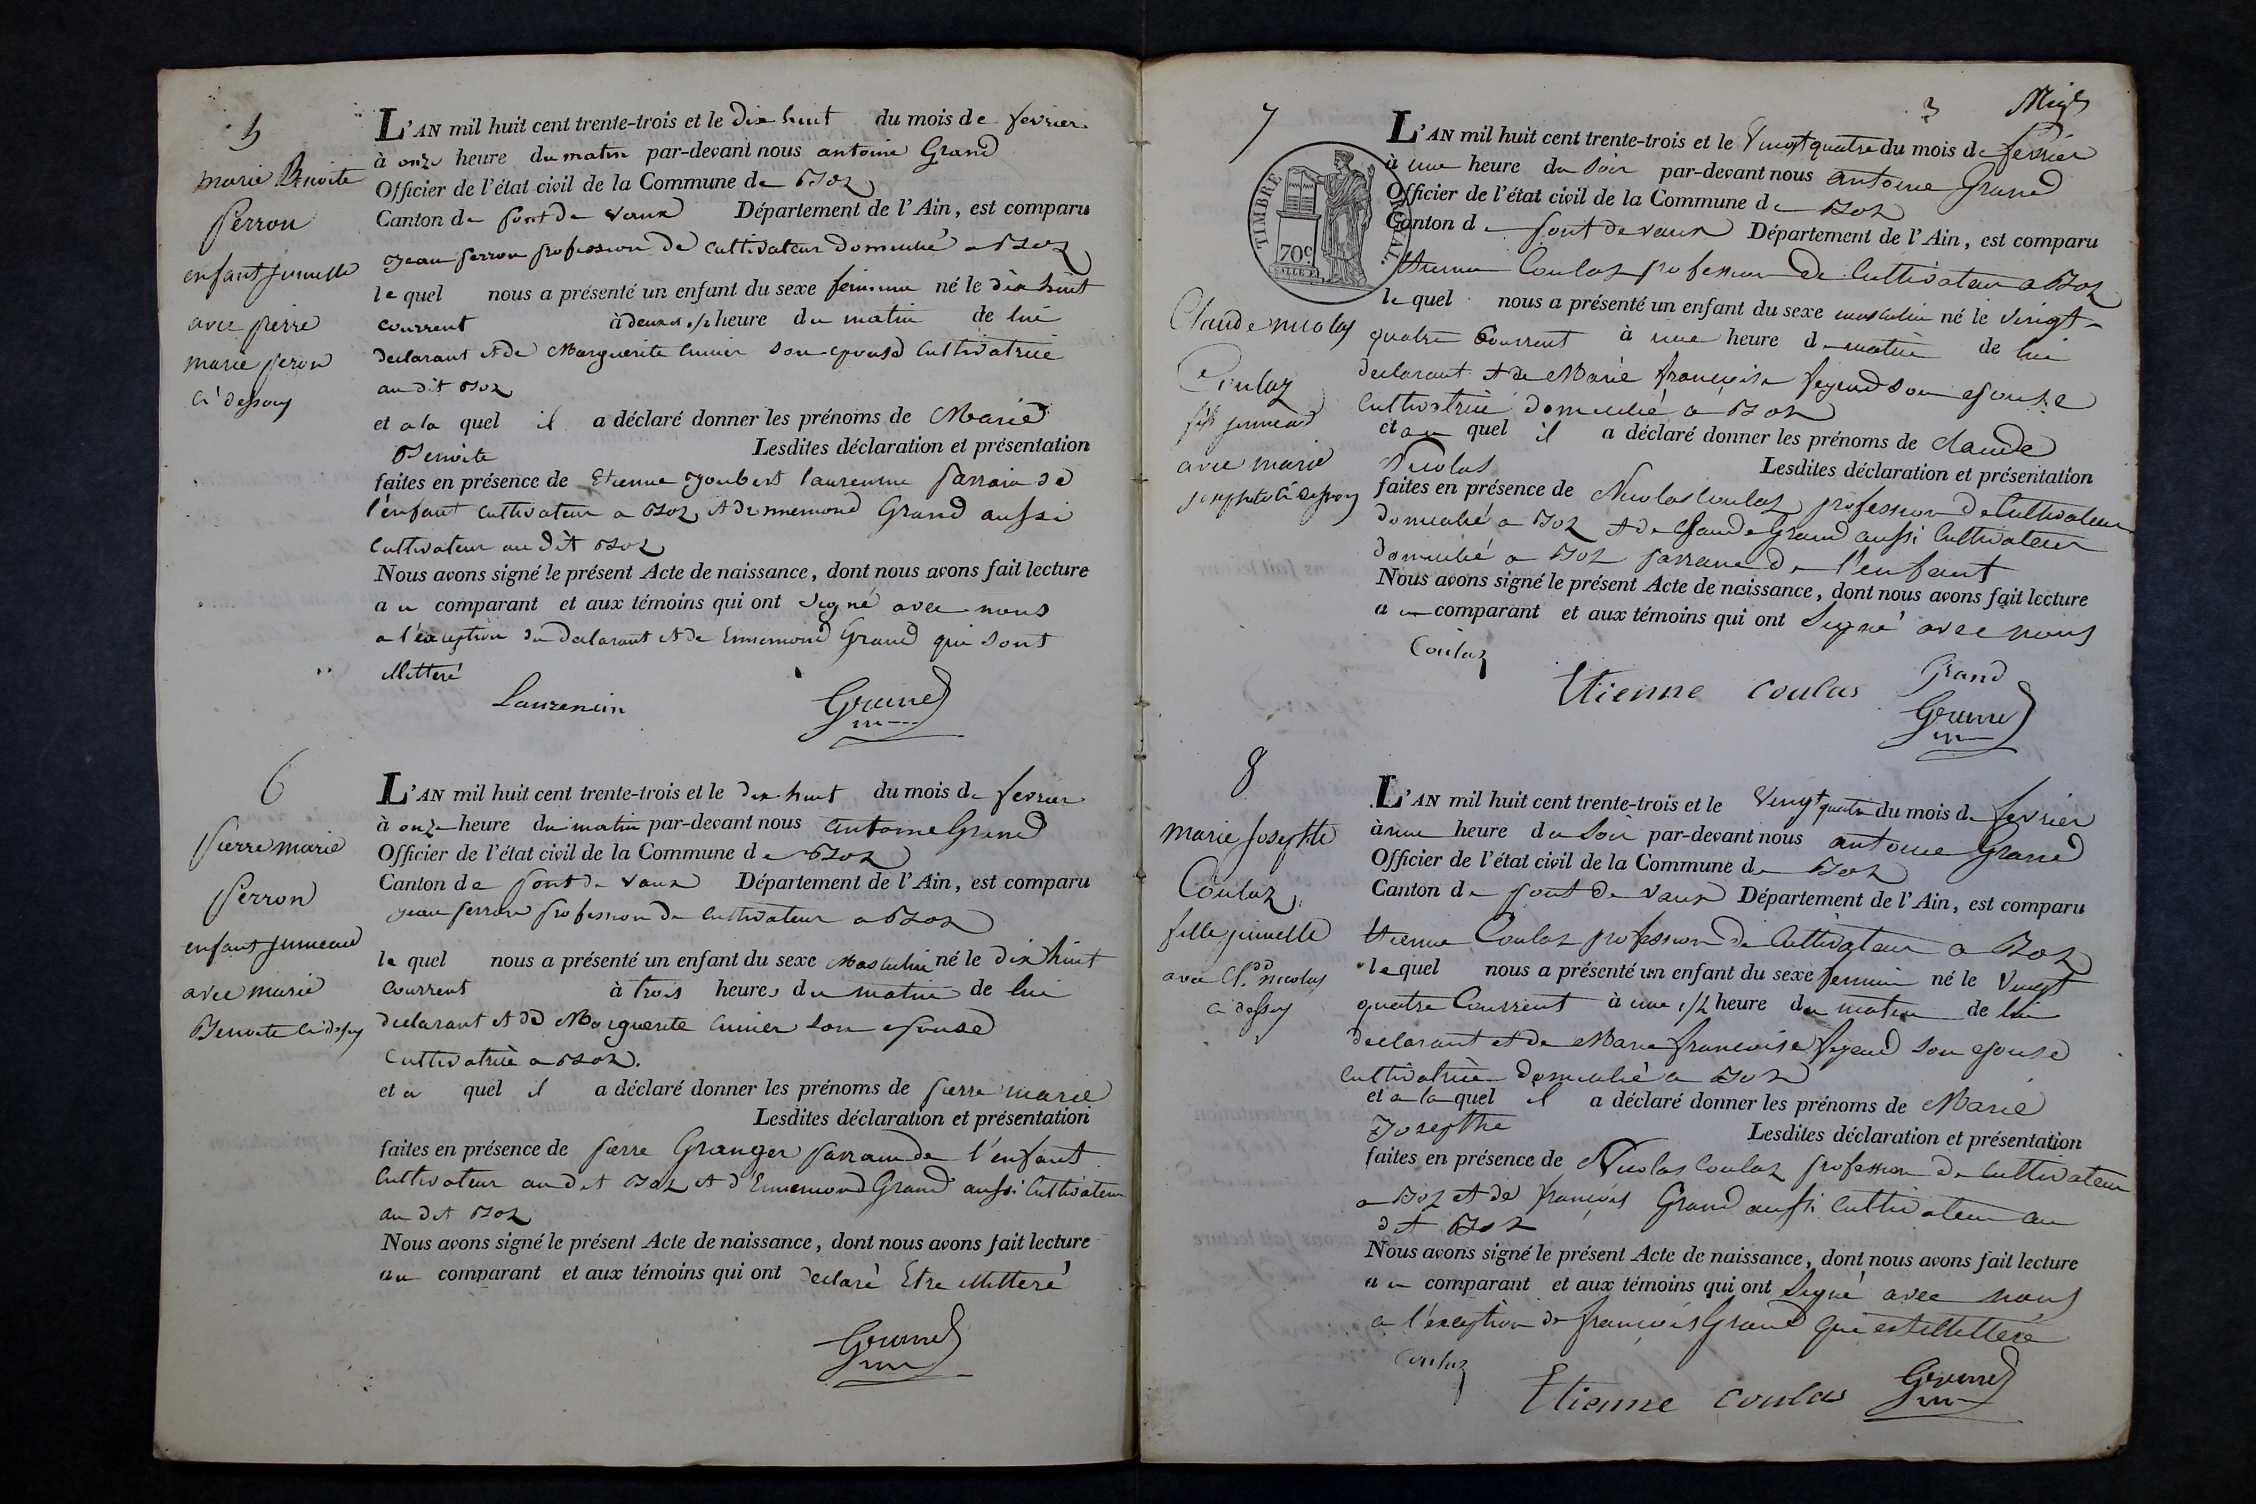 5
marie Benoite
perron
enfant jumelle
avec pierre
marie peron
ci dessous
L'AN mil huit cent trente-trois et le dix huit du mois de fevrier
à onze heure du matin par-devant nous antoine Grand
Officier de l'état civil de la Commune de Boz
Canton de pont de vaux Département de l'Ain, est comparu
jean perron profession de cultivateur domicilié a Boz
le quel nous a présenté un enfant du sexe feminin né le dix huit
courrent à deux 1/2 heure du matin de lui
declarant et de Marguerite Cunier son epouse Cultivatrice
au dit Boz
et a la quel il a déclaré donner les prénoms de Marie
Benoite Lesdites déclaration et présentation
faites en présence de Etienne Joubert laurencin parrain de
l'enfant cultivateur a Boz et dennemond Grand aussi
Cultivateur au dit Boz
Nous avons signé le présent Acte de naissance, dont nous avons fait lecture
au comparant et aux témoins qui ont signé avec nous
a l'exception du declarant et de Ennemond Grand qui sont
illitteré
Laurencin Grand
6
pierre marie
perron
enfant jumeau
avec marie
Benoite ci dessus
L'AN mil huit cent trente-trois et le dix huit du mois de fevrier
à onze heure du matin par-devant nous antoine Grand
Officier de l'état civil de la Commune de Boz
Canton de pont de vaux Département de l'Ain, est comparu
jean perron profession de Cultivateur a Boz
le quel nous a présenté un enfant du sexe Masculin né le dix huit
courrent à trois heures du matin de lui
declarant et de Marguerite Cunier son epouse
Cultivatrice a Boz.
et a quel il a déclaré donner les prénoms de pierre marie
Lesdites déclaration et présentation
faites en présence de pierre Granger parrain de l'enfant
Cultivateur au dit Boz et d'Ennemond Grand aussi Cultivateur
au dit Boz
Nous avons signé le présent Acte de naissance, dont nous avons fait lecture
au comparant et aux témoins qui ont declaré Etre illitteré
Grand
3
7
TIMBRE ROYAL.
70c
Claude nicolas
Coulaz
fils jumeau
avec marie
josephte ci dessous
L'AN mil huit cent trente-trois et le Vingt quatre du mois de fevrier
à une heure du soir par-devant nous antoine Grand
Officier de l'état civil de la Commune de Boz
Canton de pont de vaux Département de l'Ain, est comparu
Etienne Coulaz profession de Cultivateur a Boz
le quel nous a présenté un enfant du sexe masculin né le vingt-
quatre Courrent à une heure d matin de lui
declarant et de Marie francoise feyeud son epouse
Cultivatrice domicilié a Boz
et au quel il a déclaré donner les prénoms de claude
Nicolas Lesdites déclaration et présentation
faites en présence de Nicolas Coulaz profession de Cultivateur
domicilié a Boz et de Claude Grand aussi Cultivateur
domicilié a Boz parrain de l'enfant
Nous avons signé le présent Acte de naissance, dont nous avons fait lecture
au comparant et aux témoins qui ont signé avec nous
Coulaz Etienne coulas Grand
Grand
8
marie Josephte
Coulaz
fille jumelle
avec Cl.de nicolas
ci dessus
L'AN mil huit cent trente-trois et le Vingt quatre du mois de fevrier
à une heure du soir par-devant nous antoine Grand
Officier de l'état civil de la Commune de Boz
Canton de pont de vaux Département de l'Ain, est comparu
Etienne Coulaz profession de Cultivateur a Boz
le quel nous a présenté un enfant du sexe feminin né le Vingt
quatre Courrent à une 1/2 heure du matin de lui
declarant et de Marie francoise feyeud son epouse
Cultivatrice domicilié a Boz
et a la quel il a déclaré donner les prénoms de Marie
Josepthe Lesdites déclaration et présentation
faites en présence de Nicolas Coulaz profession de Cultivateur
a Boz et de françois Grand aussi Cultivateur au
dit Boz
Nous avons signé le présent Acte de naissance, dont nous avons fait lecture
au comparant et aux témoins qui ont signé avec nous
a l'exception de françois Grand qui est illitteré
Coulaz Etienne coulas Grand